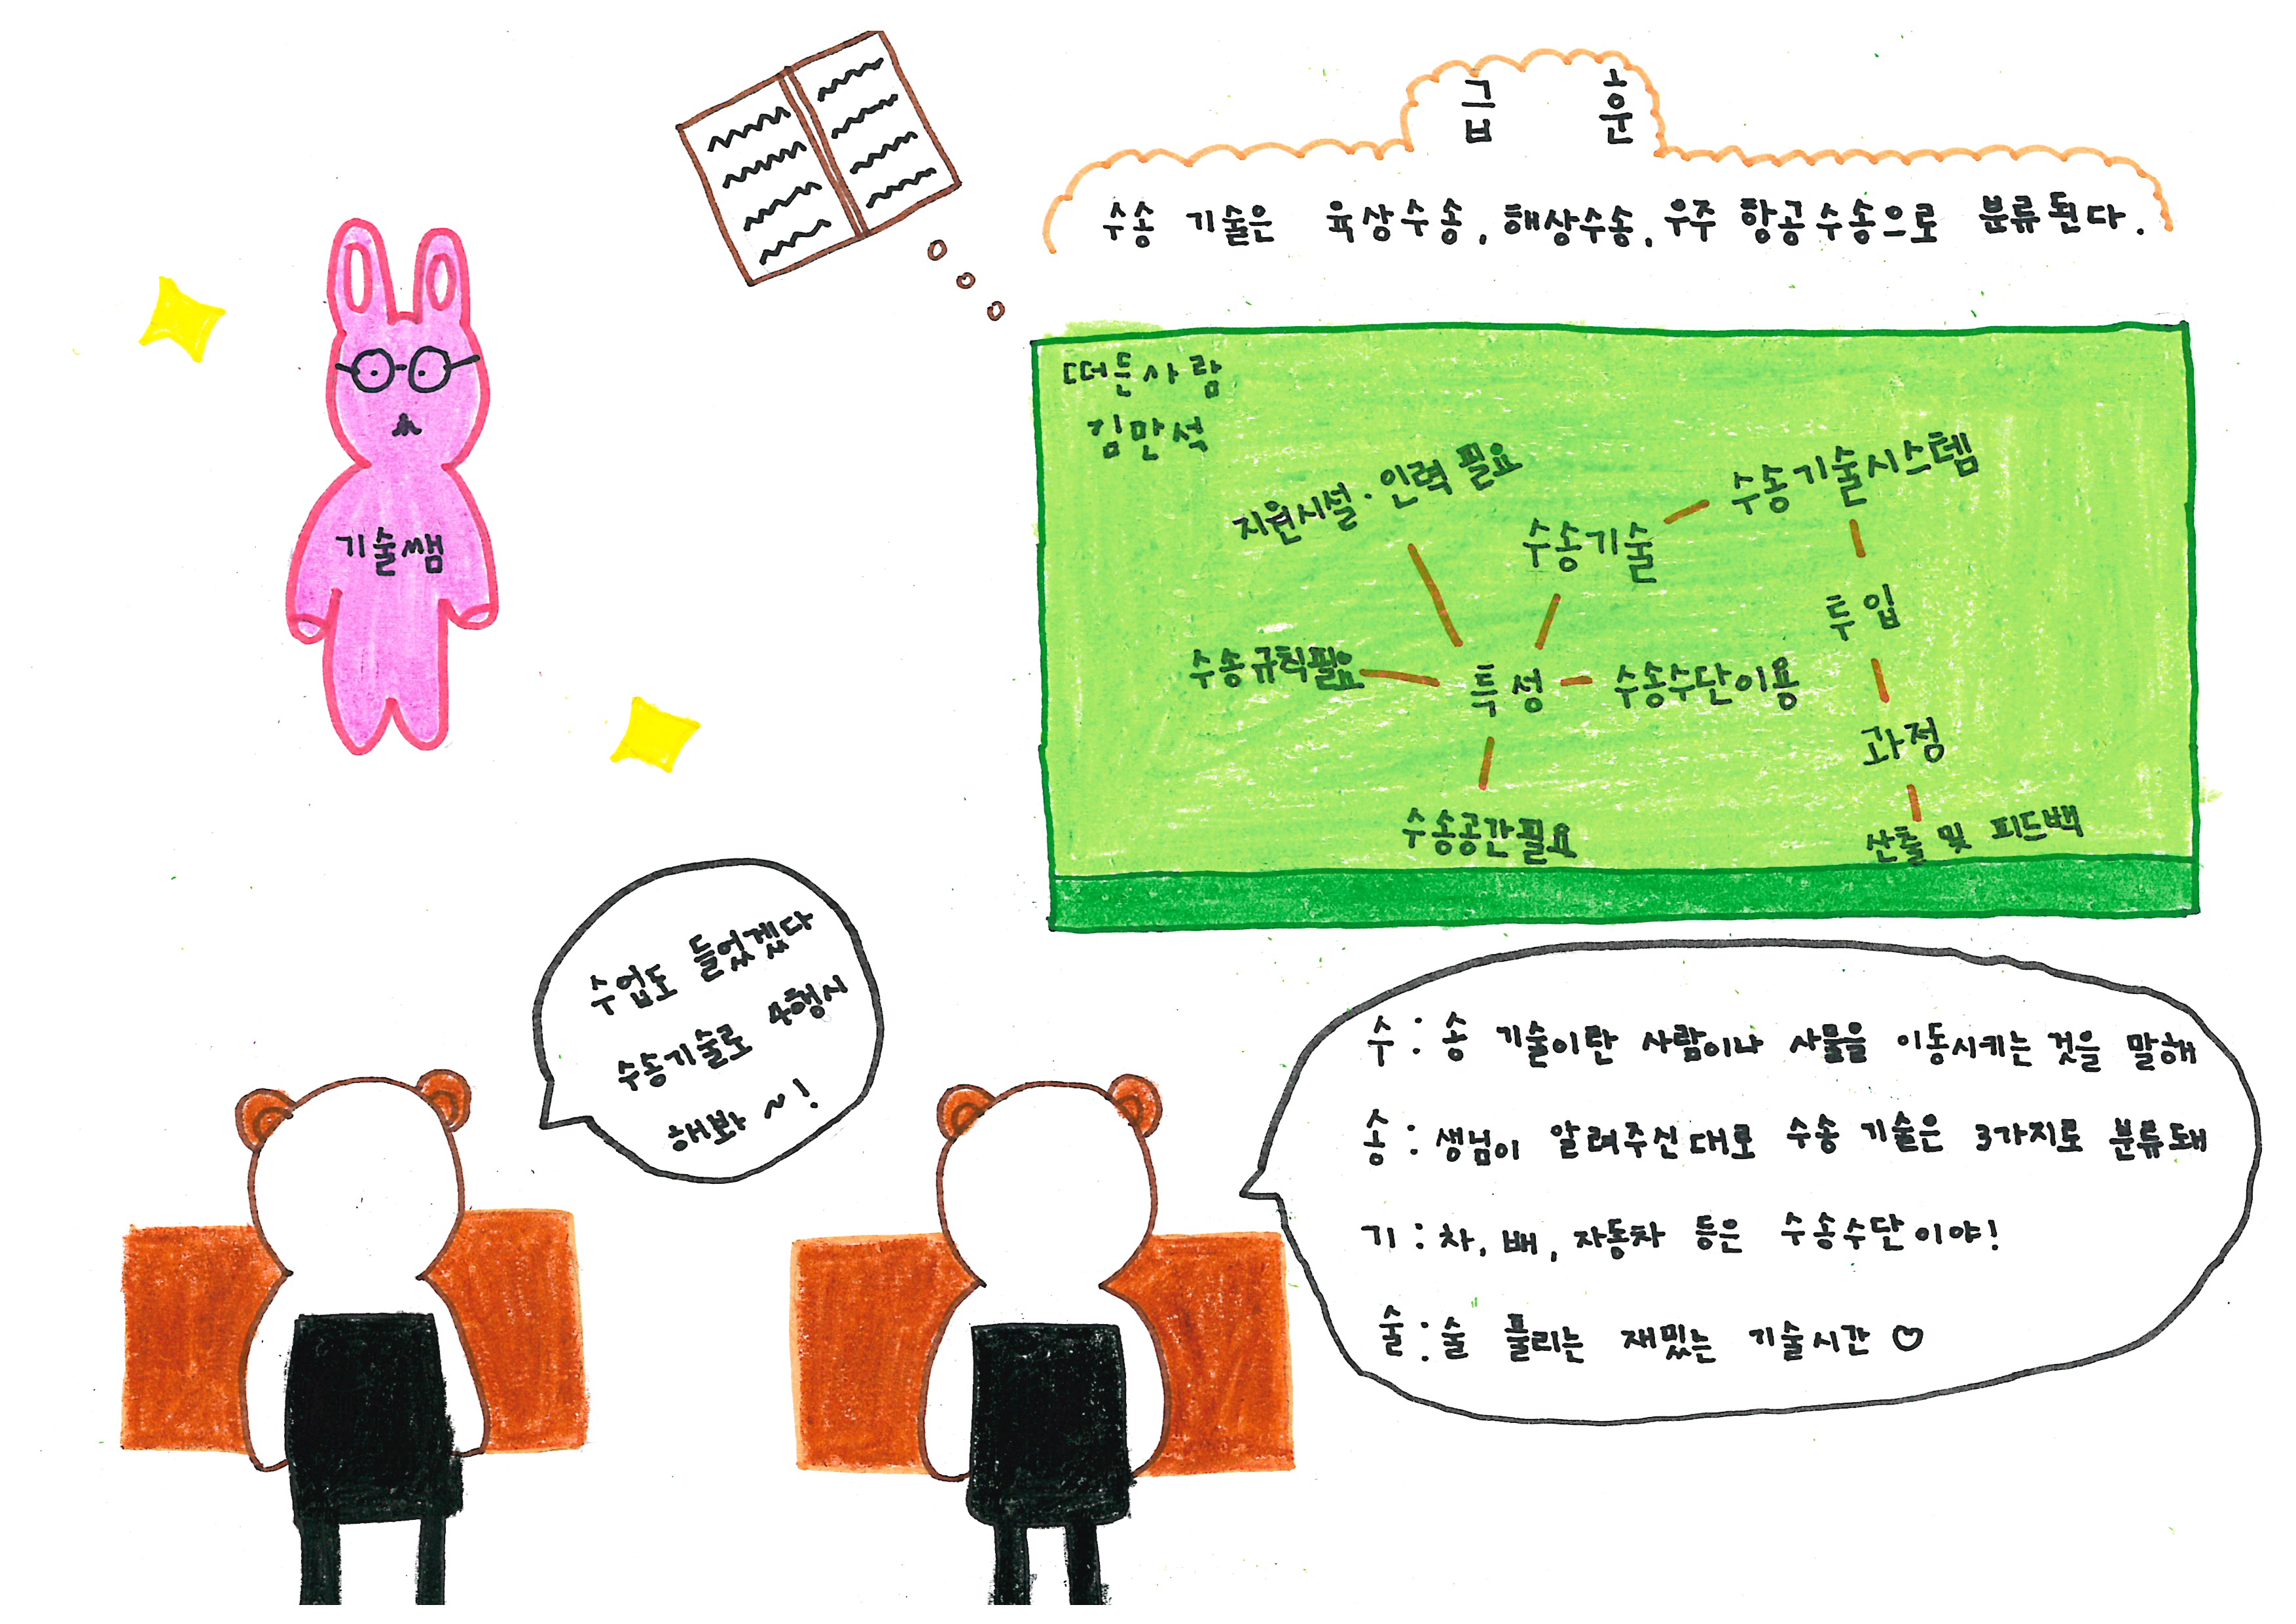 급 훈
수송 기술은 육상수송, 해상수송, 우주 항공수송으로 분류된다.
기술쌤
떠든사람
김만석
지원시설·인력 필요
수송기술
수송기술시스템
투입
수송규칙필요
특성
수송수단이용
과정
수송공간필요
산출 및 피드백
수업도 들었겠다
수송기술로 4행시
해봐~!
수: 송 기술이란 사람이나 사물을 이동시키는 것을 말해
송: 생님이 알려주신대로 수송 기술은 3가지로 분류돼
기: 차, 배, 자동차 등은 수송수단이야!
술: 술 풀리는 재밌는 기술시간♡